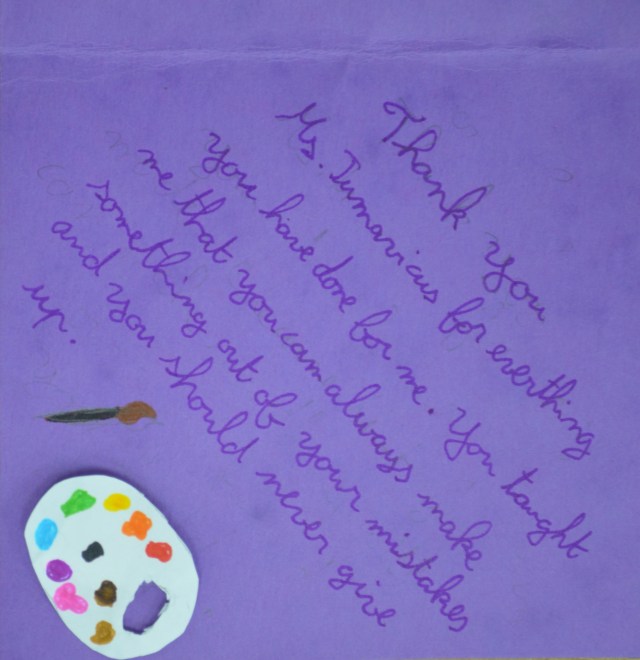 Thank you
Ms. Tumavicus for everthing
you have done for me. You taught
me that you can always make
something out of your mistakes
and you should never give
up.